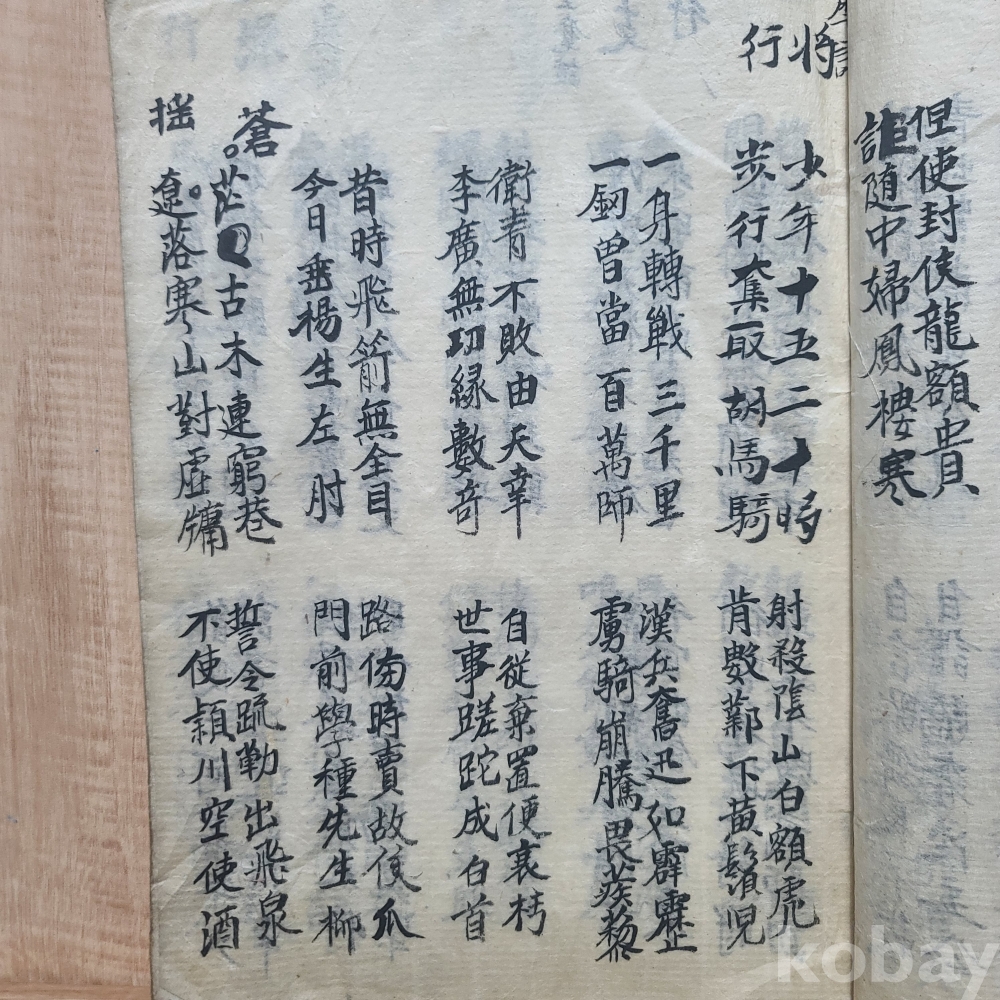 但使封侯龍額貴
詎隨中婦鳳樓寒
將
行
少年十五二十時
步行奪取胡馬騎
射殺陰山白額虎
肯數鄴下黃鬚児
一身轉戦三千里
一釼曾當百萬師
漢兵奮迅如霹靂
虜騎崩騰畏蒺藜
衛青不敗由天幸
李廣無功緣數奇
自從棄置便衰朽
世事蹉跎成白首
昔時飛箭無全目
今日垂楊生左肘
路傍時賣故侯瓜
門前學種先生柳
蒼
茫古木連窮巷
摇
遼落寒山對虛牖
誓令疏勒出飛泉
不使穎川空使酒
kobay